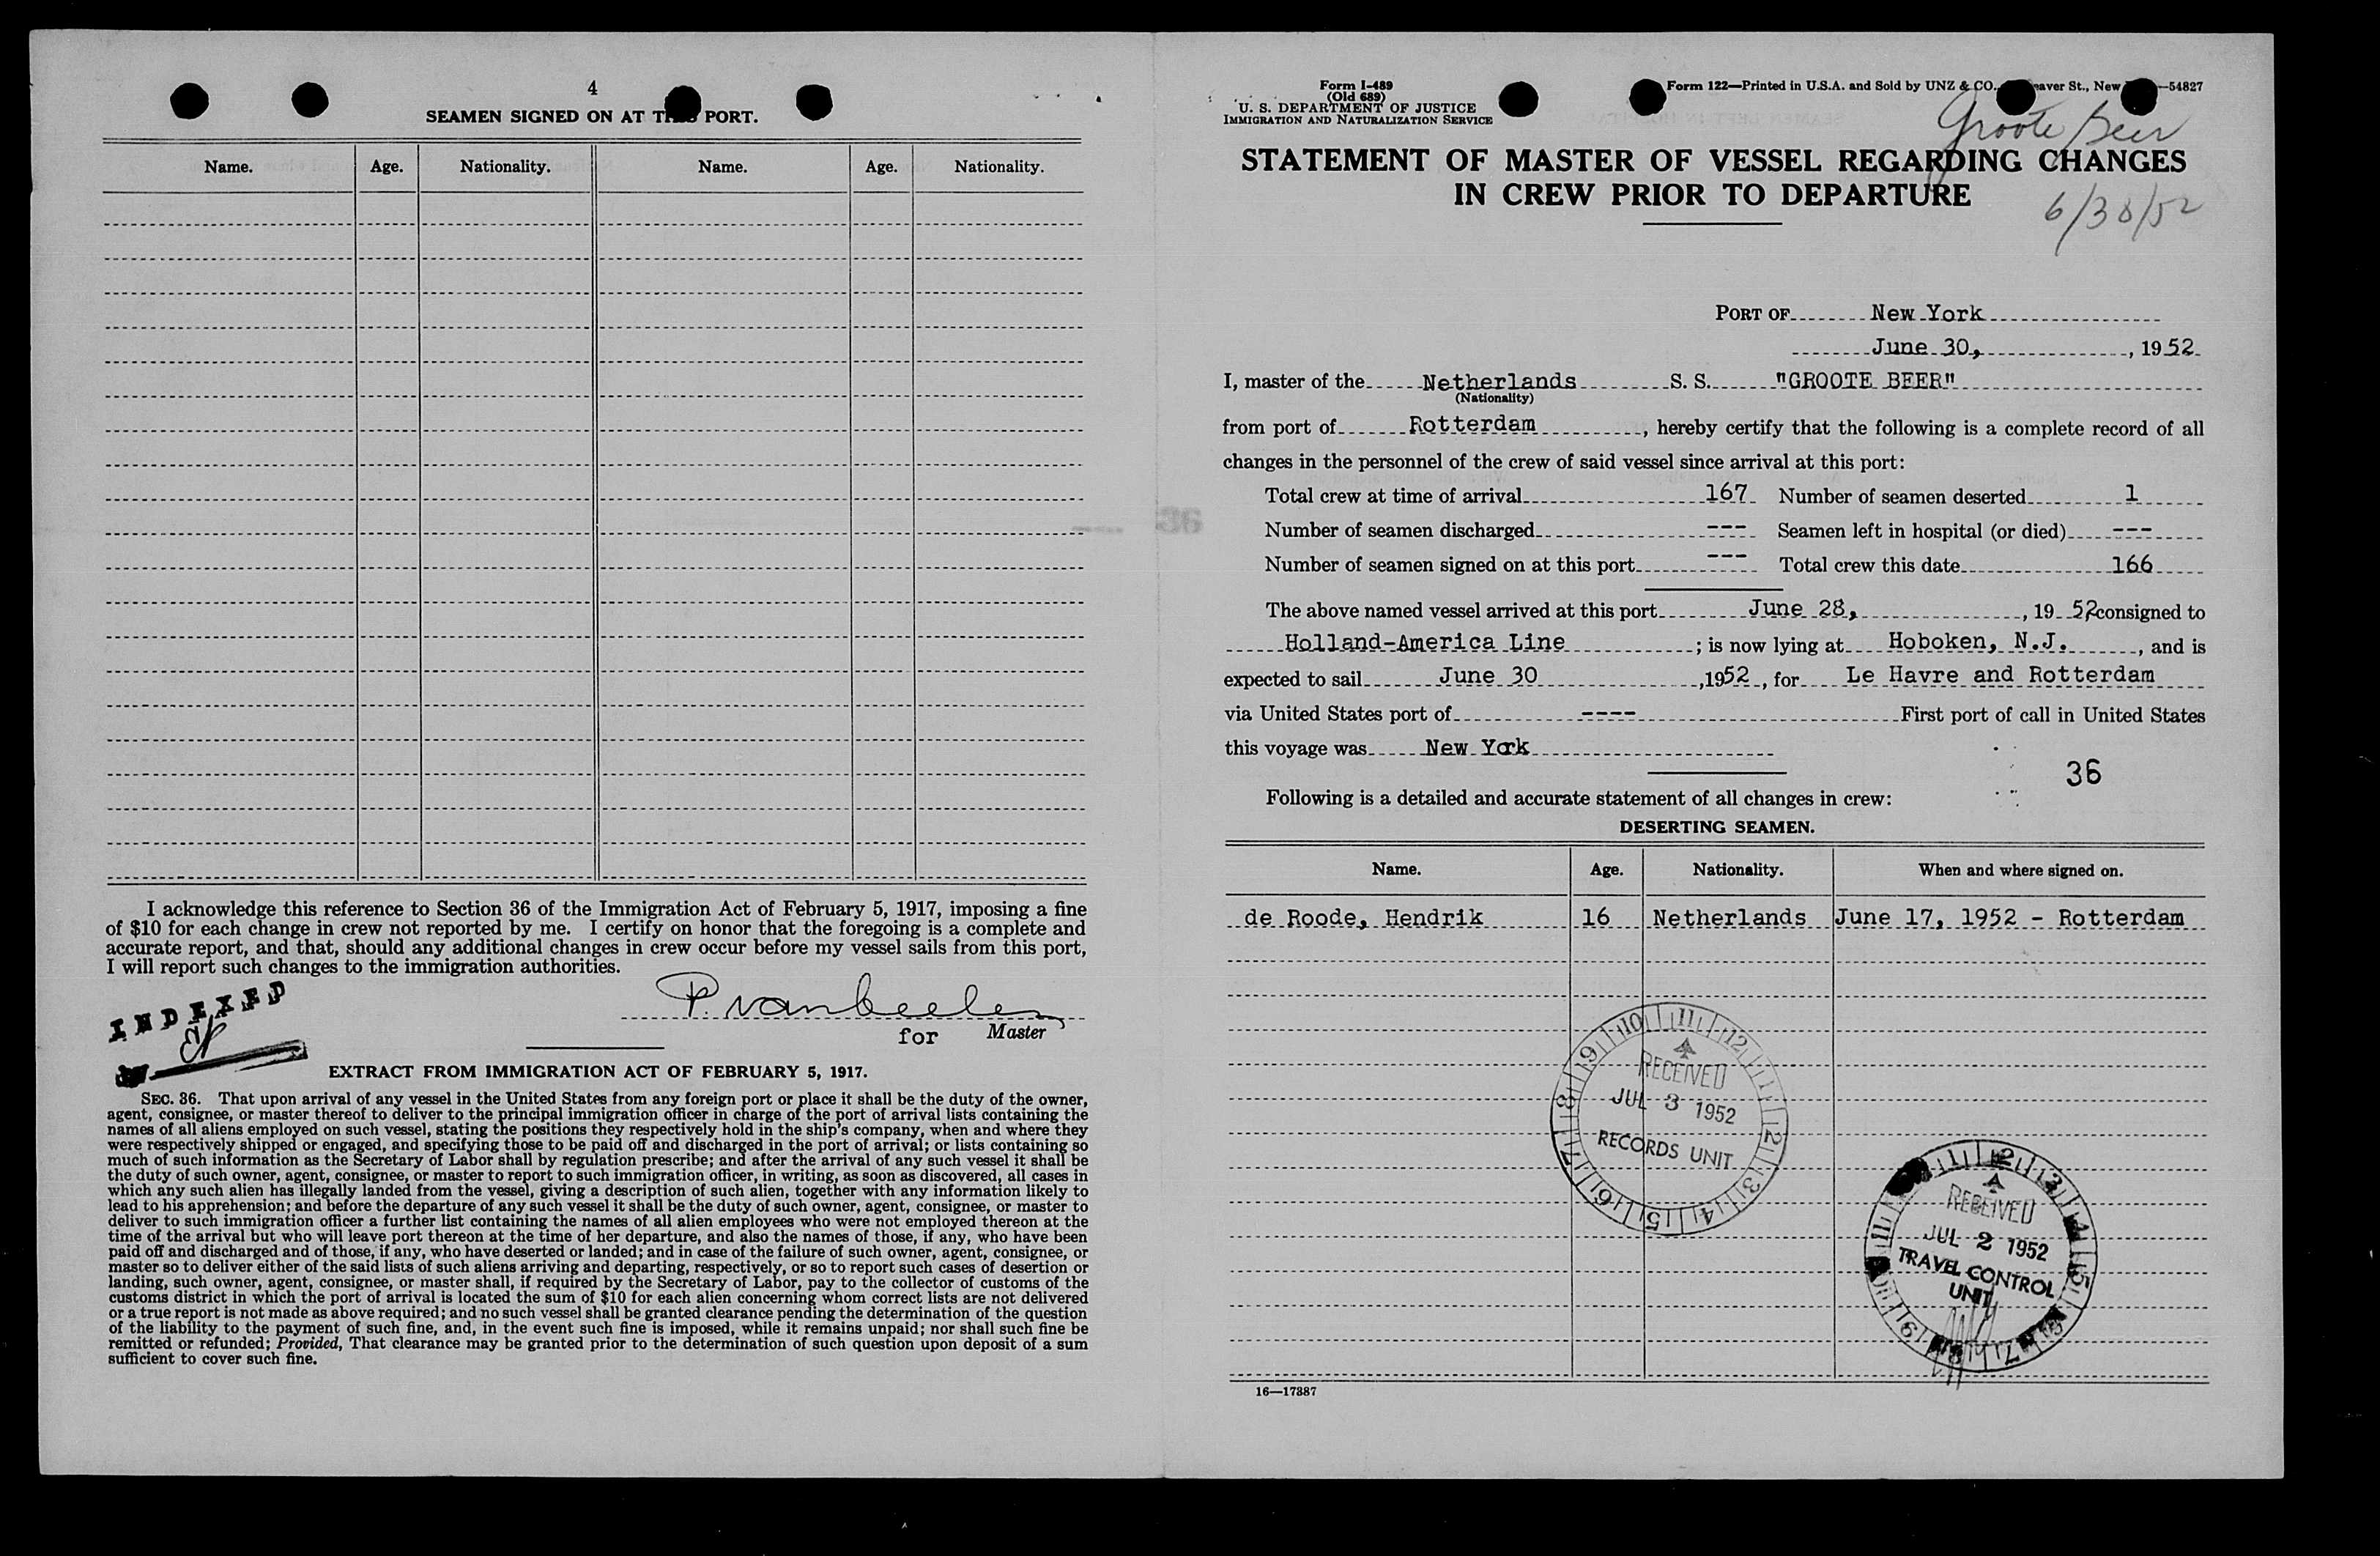 4
SEAMEN SIGNED ON AT THIS PORT.
Name. Age. Nationality. Name. Age. Nationality.
I acknowledge this reference to Section 36 of the Immigration Act of February 5, 1917, imposing a fine
of $10 for each change in crew not reported by me. I certify on honor that the foregoing is a complete and
accurate report, and that, should any additional changes in crew occur before my vessel sails from this port,
I will report such changes to the immigration authorities.
INDEXED
P. van beelen
for Master
EXTRACT FROM IMMIGRATION ACT OF FEBRUARY 5, 1917.
SEC. 36. That upon arrival of any vessel in the United States from any foreign port or place it shall be the duty of the owner,
agent, consignee, or master thereof to deliver to the principal immigration officer in charge of the port of arrival lists containing the
names of all aliens employed on such vessel, stating the positions they respectively hold in the ship's company, when and where they
were respectively shipped or engaged, and specifying those to be paid off and discharged in the port of arrival; or lists containing so
much of such information as the Secretary of Labor shall by regulation prescribe; and after the arrival of any such vessel it shall be
the duty of such owner, agent, consignee, or master to report to such immigration officer, in writing, as soon as discovered, all cases in
which any such alien has illegally landed from the vessel, giving a description of such alien, together with any information likely to
lead to his apprehension; and before the departure of any such vessel it shall be the duty of such owner, agent, consignee, or master to
deliver to such immigration officer a further list containing the names of all alien employees who were not employed thereon at the
time of the arrival but who will leave port thereon at the time of her departure, and also the names of those, if any, who have been
paid off and discharged and of those, if any, who have deserted or landed; and in case of the failure of such owner, agent, consignee, or
master so to deliver either of the said lists of such aliens arriving and departing, respectively, or so to report such cases of desertion or
landing, such owner, agent, consignee, or master shall, if required by the Secretary of Labor, pay to the collector of customs of the
customs district in which the port of arrival is located the sum of $10 for each alien concerning whom correct lists are not delivered
or a true report is not made as above required; and no such vessel shall be granted clearance pending the determination of the question
of the liability to the payment of such fine, and, in the event such fine is imposed, while it remains unpaid; nor shall such fine be
remitted or refunded; Provided, That clearance may be granted prior to the determination of such question upon deposit of a sum
sufficient to cover such fine.
Form I-489
(Old 689)
U. S. DEPARTMENT OF JUSTICE
IMMIGRATION AND NATURALIZATION SERVICE
Form 122—Printed in U.S.A. and Sold by UNZ & CO., eaver St., New —54827
Groote Beer
STATEMENT OF MASTER OF VESSEL REGARDING CHANGES
IN CREW PRIOR TO DEPARTURE
6/30/52
PORT OF New York
June 30, , 1952
I, master of the Netherlands S. S. "GROOTE BEER"
(Nationality)
from port of Rotterdam , hereby certify that the following is a complete record of all
changes in the personnel of the crew of said vessel since arrival at this port:
Total crew at time of arrival 167 Number of seamen deserted 1
Number of seamen discharged --- Seamen left in hospital (or died) ---
Number of seamen signed on at this port --- Total crew this date 166
The above named vessel arrived at this port June 28, , 19 52, consigned to
Holland-America Line ; is now lying at Hoboken, N.J. , and is
expected to sail June 30 , 1952 , for Le Havre and Rotterdam
via United States port of ---- First port of call in United States
this voyage was New York
36
Following is a detailed and accurate statement of all changes in crew:
DESERTING SEAMEN.
Name. Age. Nationality. When and where signed on.
de Roode, Hendrik 16 Netherlands June 17, 1952 - Rotterdam
RECEIVED
JUL 3 1952
RECORDS UNIT
RECEIVED
JUL 2 1952
TRAVEL CONTROL
UNIT
16—17887